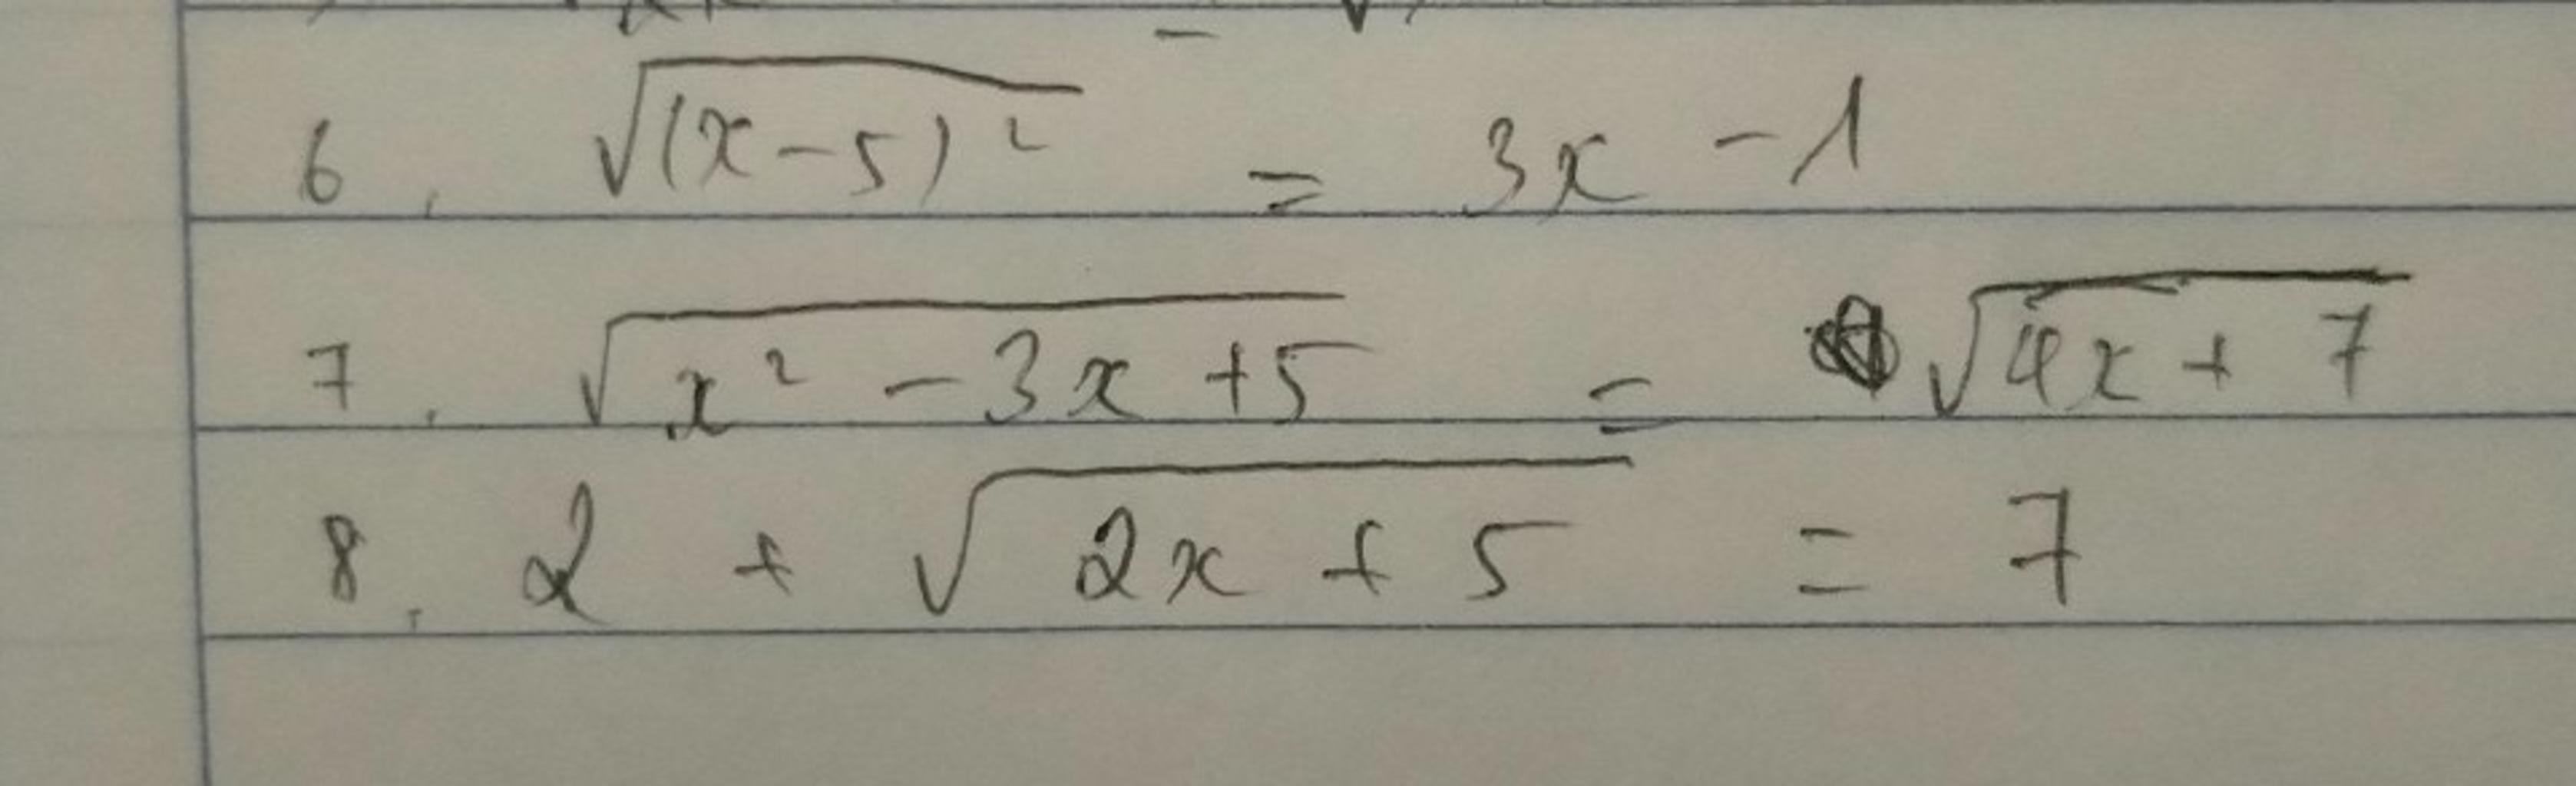 6. √(x-5)² = 3x - 1
7. √x² - 3x + 5 = √4x + 7
8. 2 + √2x + 5 = 7